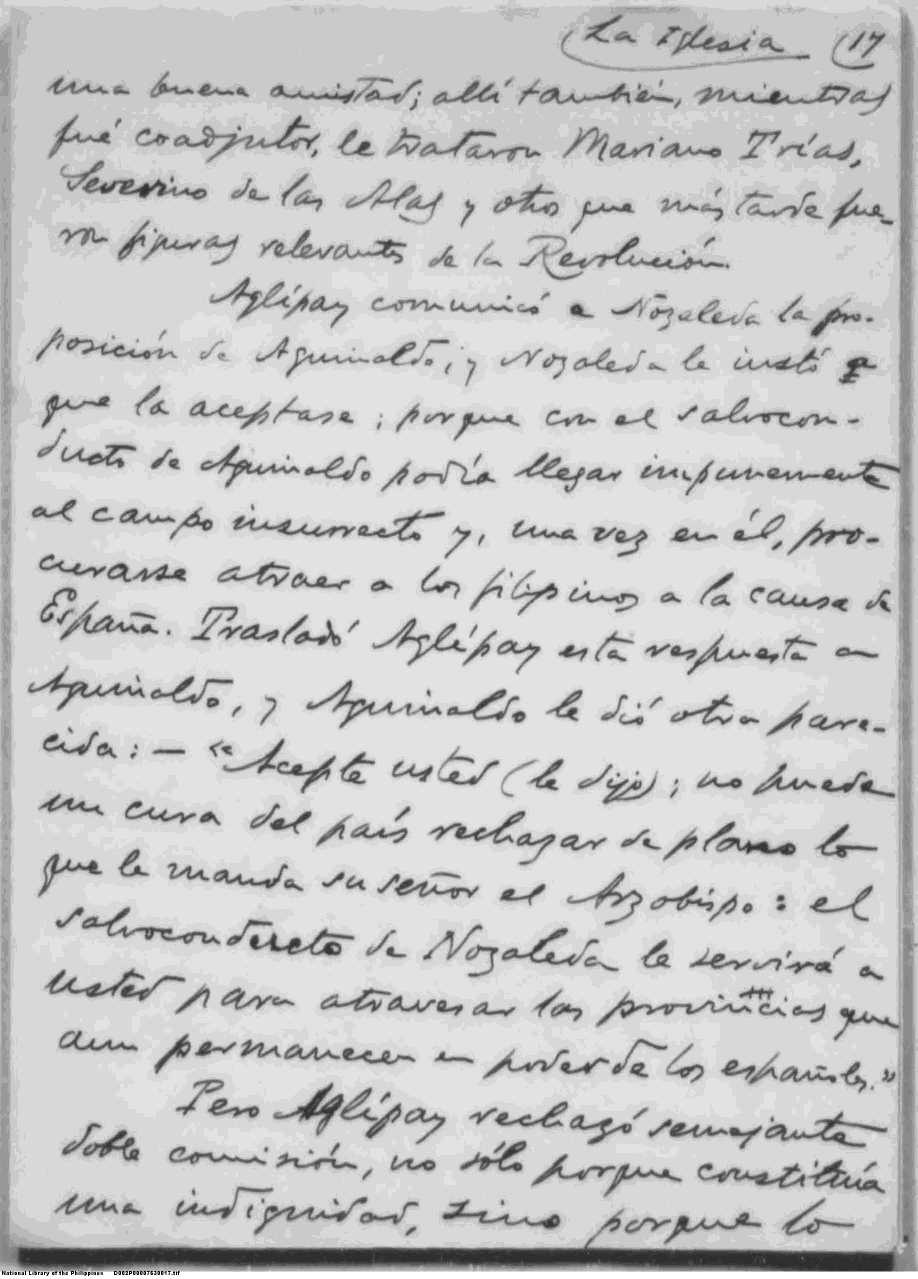 La Iglesia 17
una buena amistad; allí también, mientras
fué coadjutor, le trataron Mariano Trías,
Severino de las Alas y otros que más tarde fue-
ron figuras relevantes de la Revolución.
Aglípay comunicó a Nozaleda la pro-
posición de Aguinaldo; y Nozaleda le instó a
que la aceptase; porque con el salvocon-
ducto de Aguinaldo podía llegar impunemente
al campo insurrecto y, una vez en él, pro-
curarse atraer a los filipinos a la causa de
España. Trasladó Aglípay esta respuesta a
Aguinaldo, y Aguinaldo le dió otra pare-
cida: — "Acepte usted (le dijo); no puede
un cura del país rechazar de plano lo
que le manda su señor el Arzobispo: el
salvoconducto de Nozaleda le servirá a
usted para atravesar las provincias que
aun permanecen en poder de los españoles."
Pero Aglípay rechazó semejante
doble comisión, no sólo porque constituía
una indignidad, sino porque lo
National Library of the Philippines D002P00087630017.tif